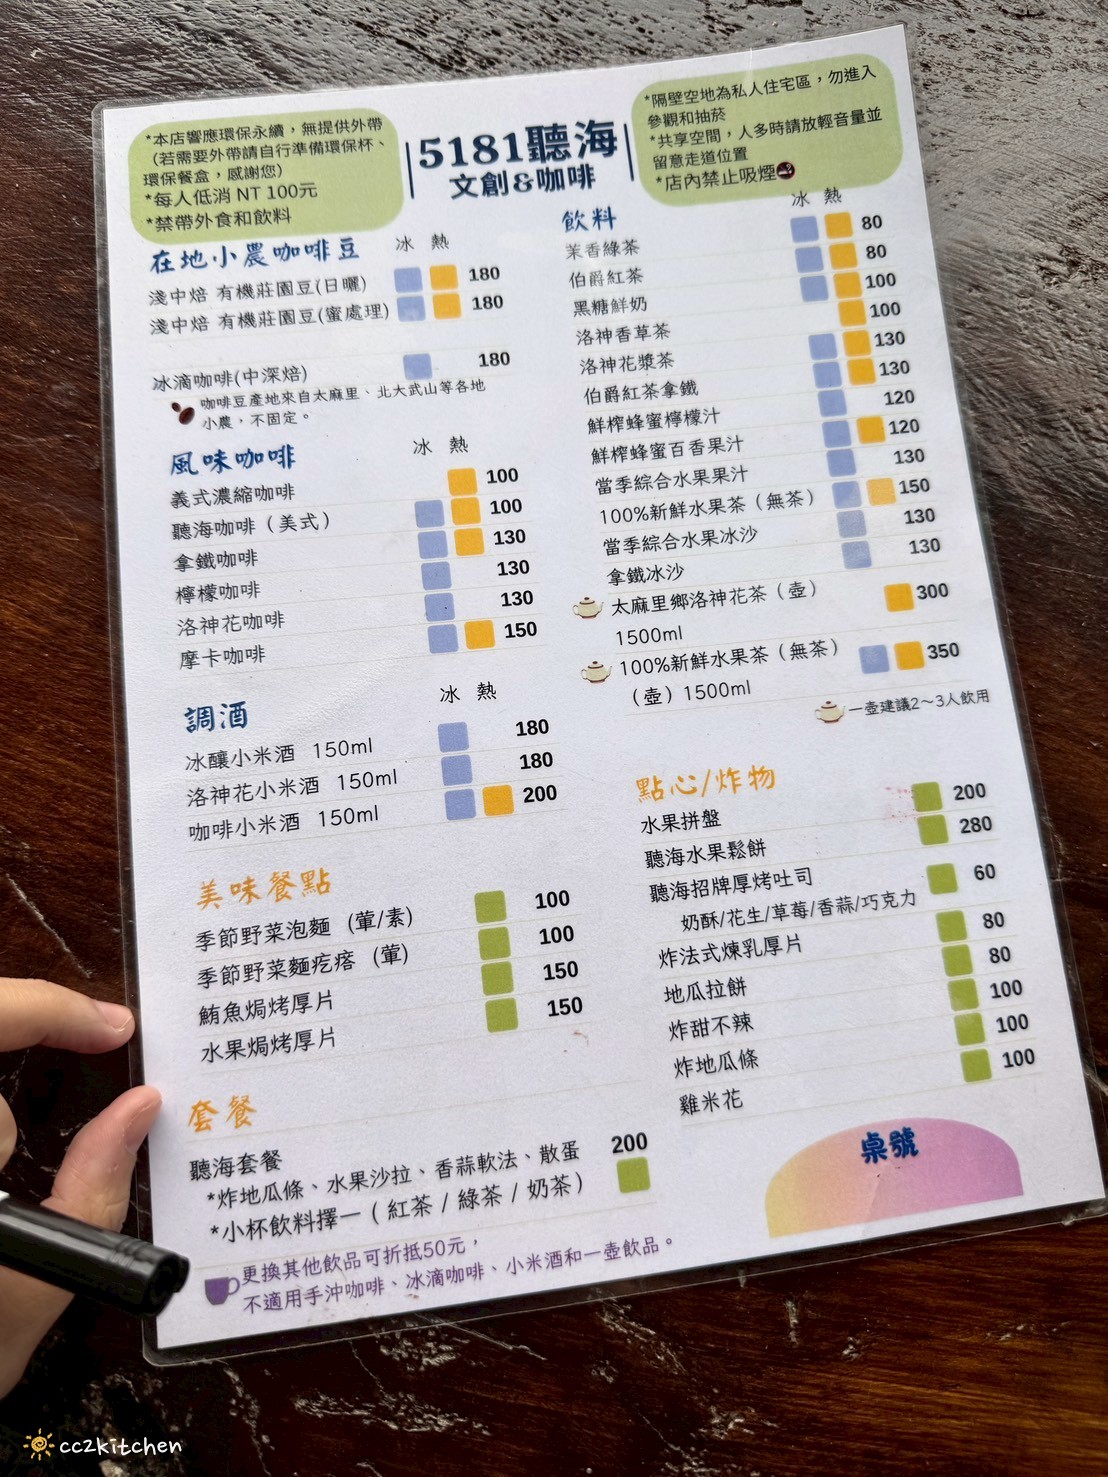 *本店響應環保永續，無提供外帶
（若需要外帶請自行準備環保杯、
環保餐盒，感謝您）
*每人低消 NT 100元
*禁帶外食和飲料
5181聽海
文創&咖啡
*隔壁空地為私人住宅區，勿進入
參觀和抽菸
*共享空間，人多時請放輕音量並
留意走道位置
*店內禁止吸煙
在地小農咖啡豆 冰 熱
淺中焙 有機莊園豆(日曬) 180
淺中焙 有機莊園豆(蜜處理) 180
冰滴咖啡(中深焙) 180
咖啡豆產地來自太麻里、北大武山等各地
小農，不固定。
風味咖啡 冰 熱
義式濃縮咖啡 100
聽海咖啡（美式） 100
拿鐵咖啡 130
檸檬咖啡 130
洛神花咖啡 130
摩卡咖啡 150
調酒 冰 熱
冰釀小米酒 150ml 180
洛神花小米酒 150ml 180
咖啡小米酒 150ml 200
美味餐點
季節野菜泡麵 (葷/素) 100
季節野菜麵疙瘩 (葷) 100
鮪魚焗烤厚片 150
水果焗烤厚片 150
套餐
聽海套餐 200
*炸地瓜條、水果沙拉、香蒜軟法、散蛋
*小杯飲料擇一（紅茶 / 綠茶 / 奶茶）
更換其他飲品可折抵50元，
不適用手沖咖啡、冰滴咖啡、小米酒和一壺飲品。
飲料 冰 熱
茉香綠茶 80
伯爵紅茶 80
黑糖鮮奶 100
洛神香草茶 100
洛神花漿茶 130
伯爵紅茶拿鐵 130
鮮榨蜂蜜檸檬汁 120
鮮榨蜂蜜百香果汁 120
當季綜合水果果汁 130
100%新鮮水果茶（無茶） 150
當季綜合水果冰沙 130
拿鐵冰沙 130
太麻里鄉洛神花茶（壺） 300
1500ml
100%新鮮水果茶（無茶） 350
（壺）1500ml
一壺建議2～3人飲用
點心/炸物
水果拼盤 200
聽海水果鬆餅 280
聽海招牌厚烤吐司 60
奶酥/花生/草莓/香蒜/巧克力
炸法式煉乳厚片 80
地瓜拉餅 80
炸甜不辣 100
炸地瓜條 100
雞米花 100
桌號
cc2kitchen